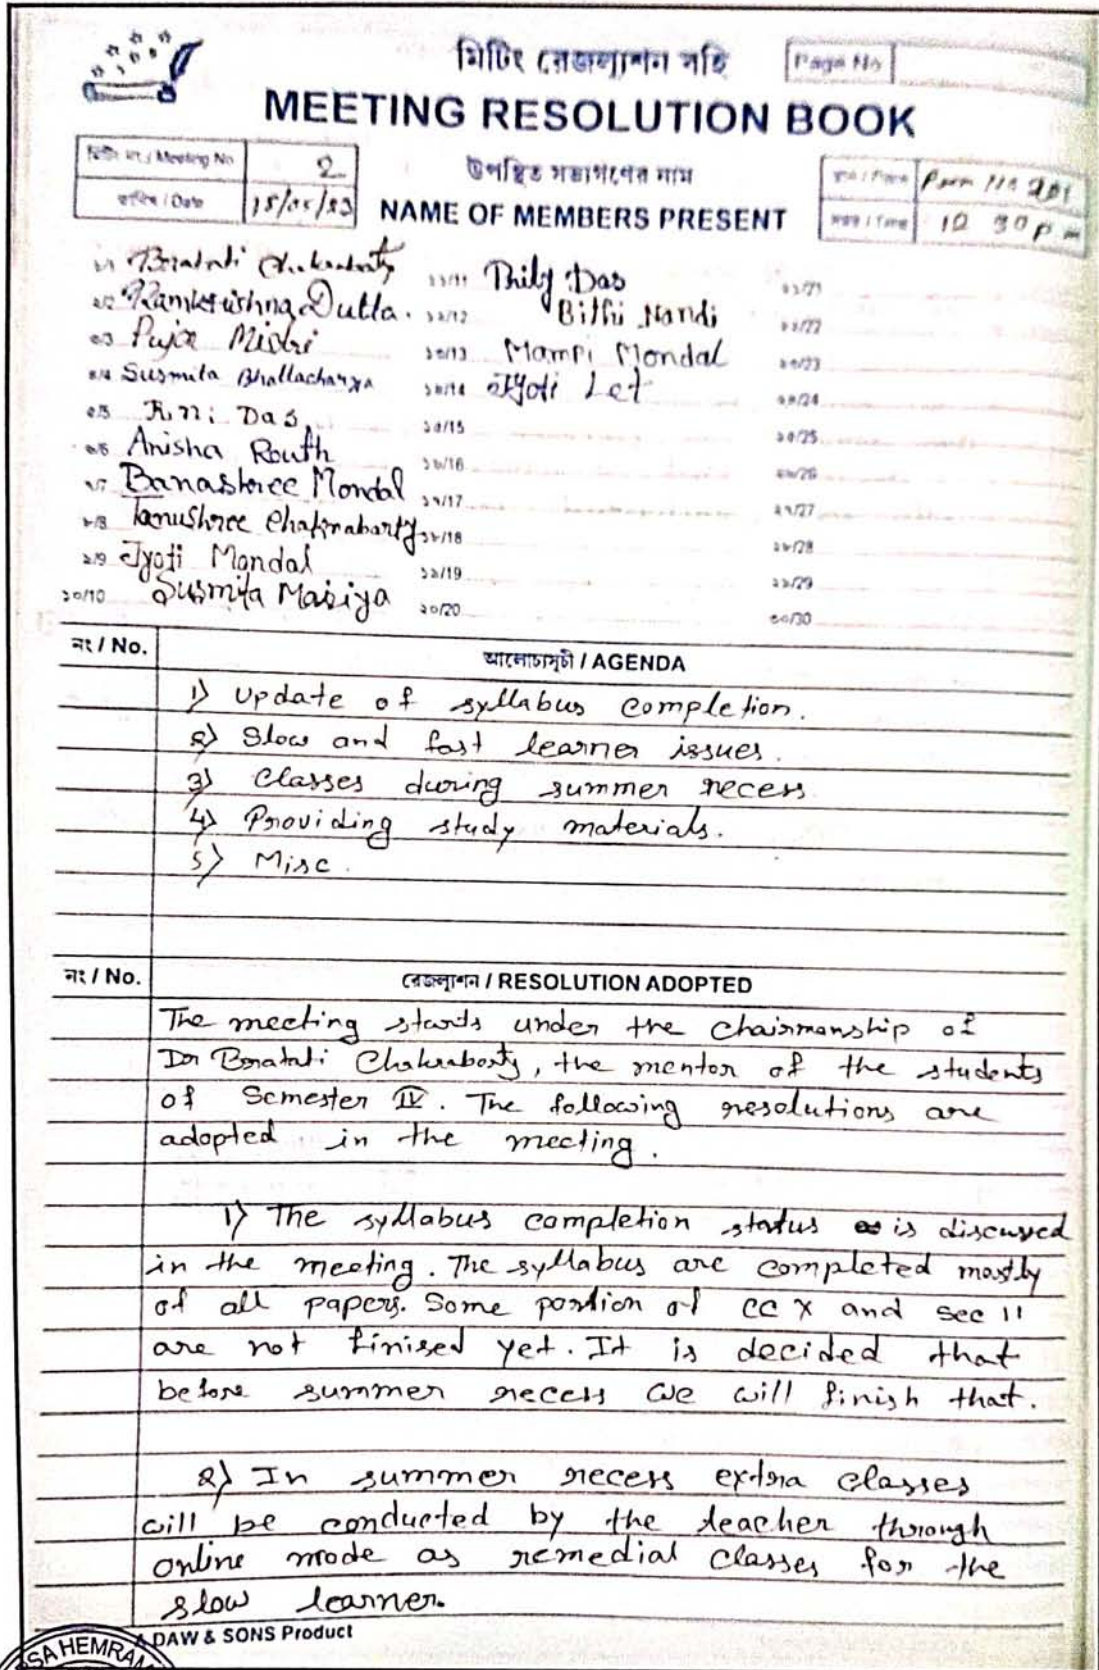 মিটিং রেজল্যুশন বহি
Page No
MEETING RESOLUTION BOOK
মিটিং নং / Meeting No 2
উপস্থিত সভ্যগণের নাম
স্থান / Place Room No 201
তারিখ / Date 15/05/23
NAME OF MEMBERS PRESENT
সময় / Time 12 30 p.m
১/1 Bratati Chakraborty
২/2 Ramkrishna Dutta.
৩/3 Puja Mistri
৪/4 Susmita Bhattacharyya
৫/5 Rini Das
৬/6 Anisha Routh
৭/7 Banashree Mondal
৮/8 Tanushree Chakrabarty
৯/9 Jyoti Mondal
১০/10 Susmita
১১/11 Das
১২/12 Bithi Nandi
১৩/13 Mampi Mondal
১৪/14 Jyoti Let
১৫/15
১৬/16
১৭/17
১৮/18
১৯/19
২০/20
২১/21
২২/22
২৩/23
২৪/24
২৫/25
২৬/26
২৭/27
২৮/28
২৯/29
৩০/30
নং / No. আলোচ্যসূচী / AGENDA
1) Update of syllabus completion.
2) Slow and fast learner issues.
3) Classes during summer recess
4) Providing study materials.
5) Misc.
নং / No. রেজল্যুশন / RESOLUTION ADOPTED
The meeting starts under the chairmanship of
Dr Bratati Chakraborty, the mentor of the students
of Semester IV. The following resolutions are
adopted in the meeting.
1) The syllabus completion status is discussed
in the meeting. The syllabus are completed mostly
of all papers. Some portion of CC X and Sec 11
are not finised yet. It is decided that
before summer recess we will finish that.
2) In summer recess extra classes
will be conducted by the teacher through
online mode as remedial classes for the
slow learner.
DAW & SONS Product
SA HEMRA